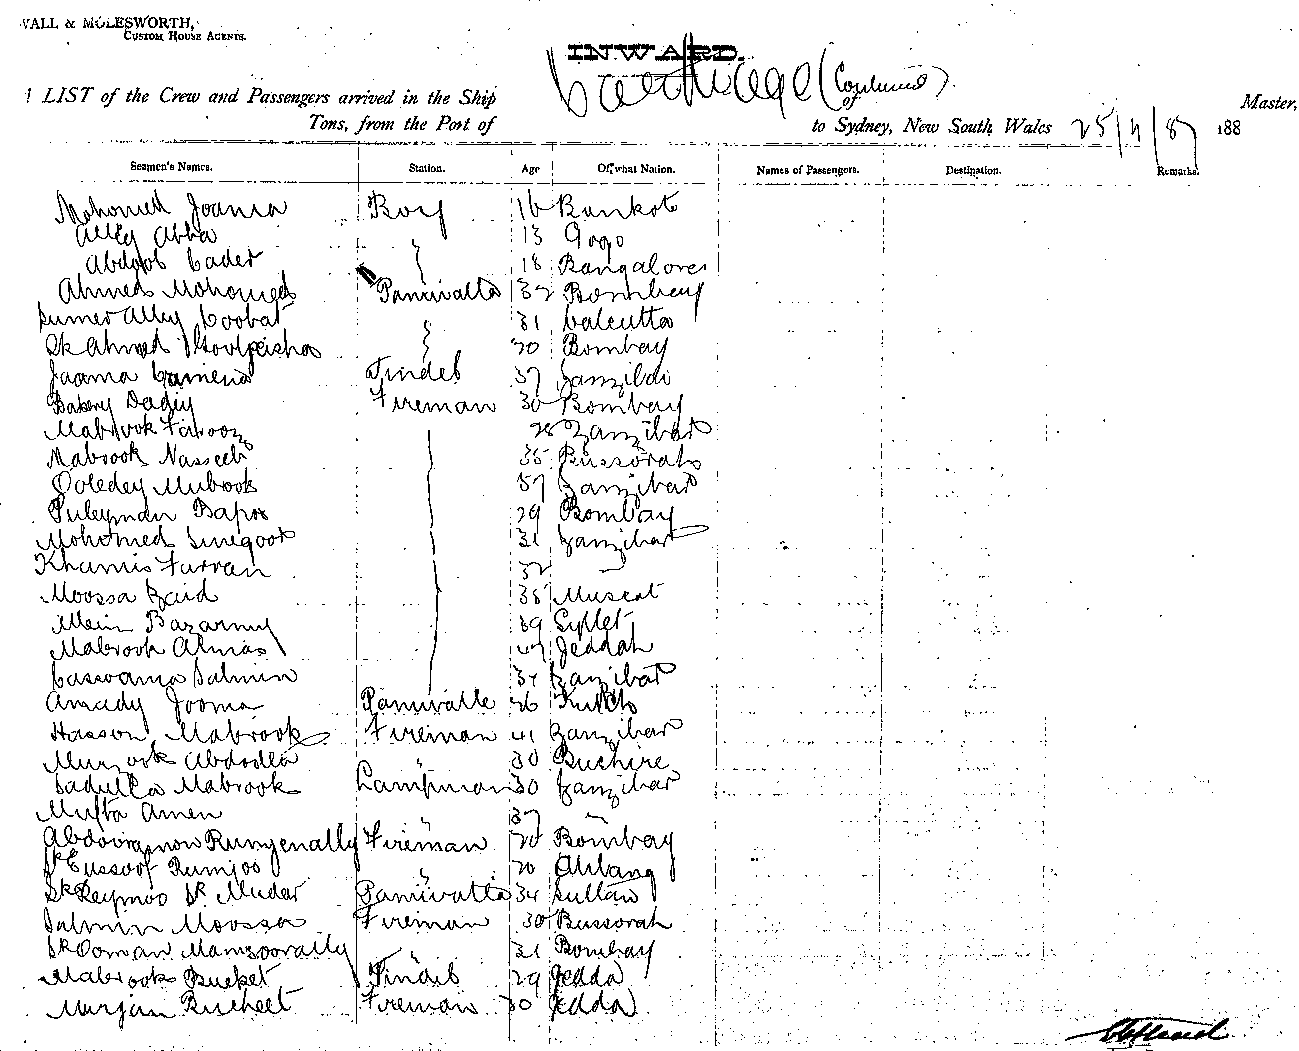 WALL & MOLESWORTH,
CUSTOM HOUSE AGENTS.
INWARD.
LIST of the Crew and Passengers arrived in the Ship Carthage (Continued) of Master,
Tons, from the Port of to Sydney, New South Wales 25/11/87 188
Seamen's Names. Station. Age Of what Nation. Names of Passengers. Destination. Remarks.
Mohomed Jooma Boy 16 Bankot
Alley Abba " 13 Gogo
Abdool Cader " 18 Bangalore
Ahmed Mohomed Paniwalla 32 Bombay
Sumer Alley Coobat " 31 Calcutta
Sk Ahmed " 20 Bombay
Jooma Tindel 37 Zanzibar
Bakery Fireman 30 Bombay
Mabrook Farooz 28 Zanzibar
Mabrook Nasseeb 35 Bussorah
Ooledey Mubrook 37 Zanzibar
Suleyman Bapoo 29 Bombay
Mohomed 31 Zanzibar
Khamis Farran 32 "
Moossa Zaid 38 Muscat
Bazarmy 39 Syllet
Mabrook Almas 47 Jeddah
Salmin 37 Zanzibar
Amady Jooma Paniwalla 26 Kutch
Hasson Mabrook Fireman 41 Zanzibar
Murzook Abdoolla " 30 Buchire
Sadulla Mabrook Lampman 30 Zanzibar
Mufta Amen " 37 "
Fireman 20 Bombay
Sk Eussoof Rumjoo " 20
Sk Muder Paniwalla 34
Salmin Moossa Fireman 30 Bussorah
Sk Ooman Mamsoorally " 31 Bombay
Mabrook Bucket Tindel 29 Jedda
Murjan Bucheet Fireman 30 Jedda